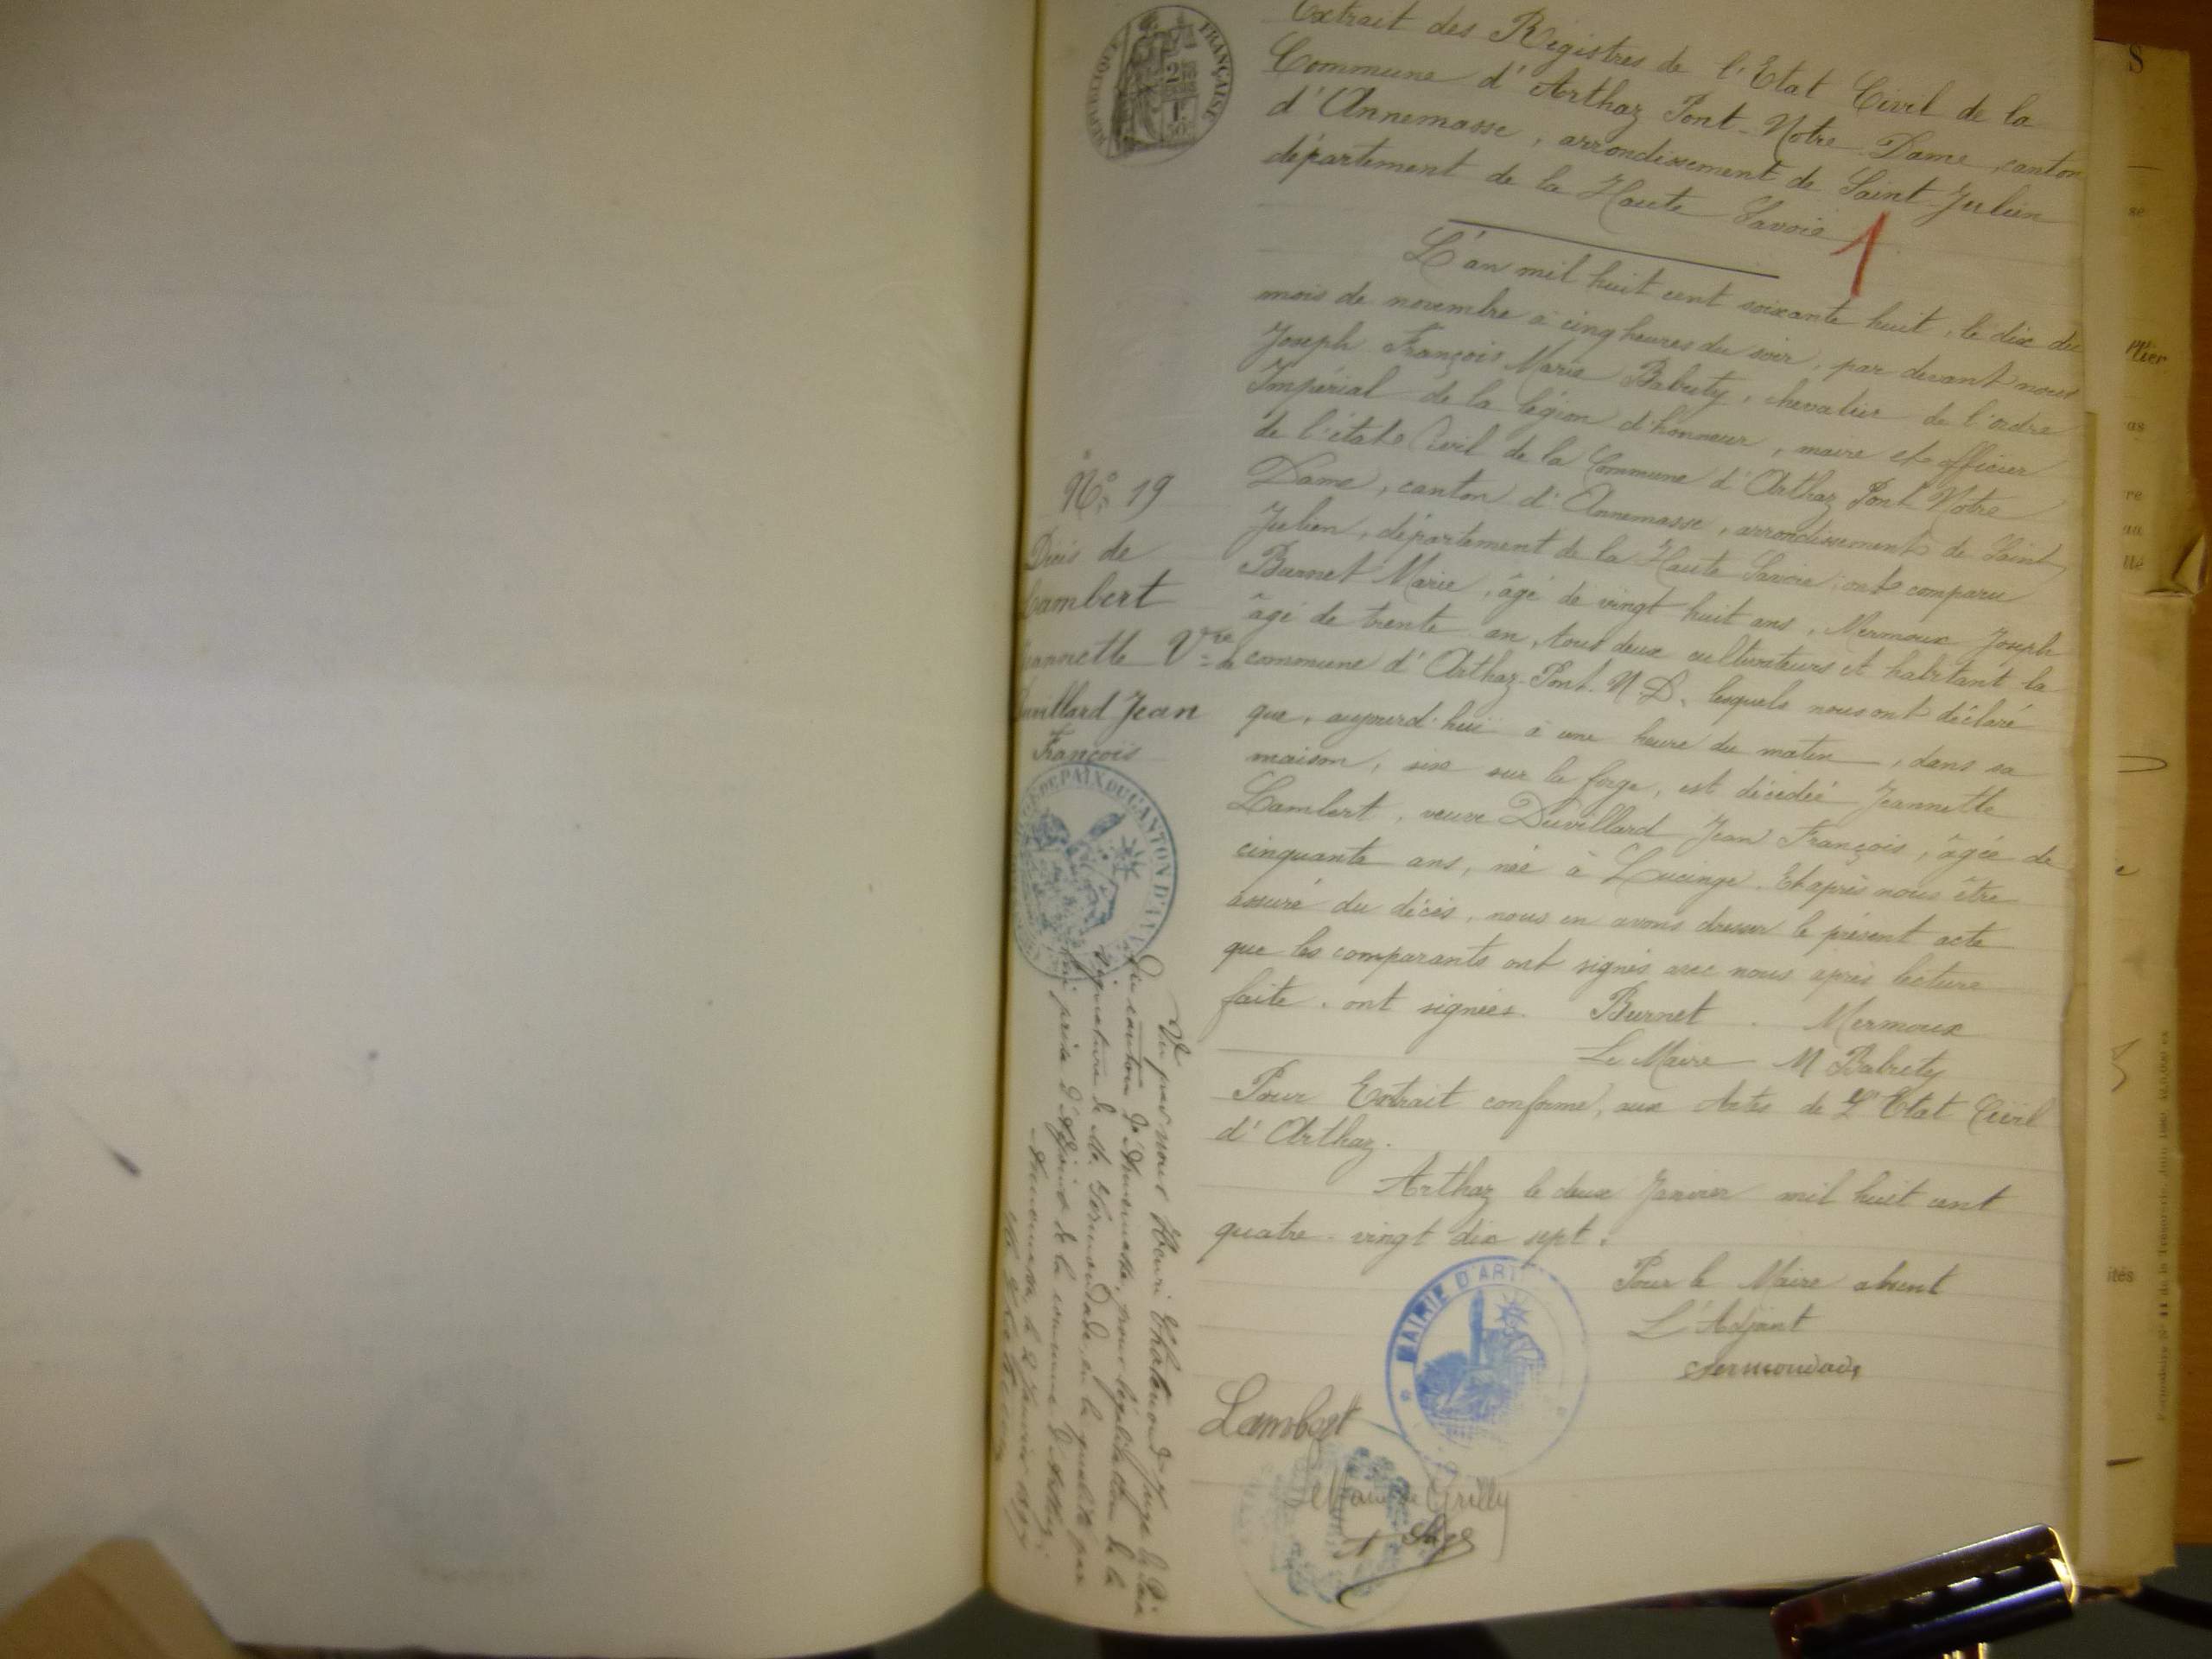 RÉPUBLIQUE FRANÇAISE
Extrait des Régistres de l'Etat Civil de la
Commune d'Arthaz Pont-Notre Dame, canton
d'Annemasse, arrondissement de Saint-Julien
département de la Haute Savoie
1
L'an mil huit cent soixante huit, le dix du
mois de novembre à cinq heures du soir, par devant nous
Joseph François Marie Babuty, chevalier de l'ordre
Impérial de la légion d'honneur, maire et officier
de l'état Civil de la Commune d'Arthaz Pont Notre
Dame, canton d'Annemasse, arrondissement de Saint
Julien, département de la Haute Savoie, ont comparu
Burnet Marie, âgé de vingt huit ans, Mermoux Joseph
âgé de trente an, tous deux cultivateurs et habitant la
commune d'Arthaz-Pont. N.D. lesquels nous ont déclaré
que, aujourd'hui à une heure du matin, dans sa
maison, sise sur la forge, est décédée Jeannette
Lambert, veuve Duvillard Jean François, âgée de
cinquante ans, née à Lucinge. Et après nous être
assuré du décès, nous en avons dresser le présent acte
que les comparants ont signés avec nous après lecture
faite. ont signées. Burnet. Mermoux
Le Maire M Babuty
Pour Extrait conforme, aux Actes de L'Etat Civil
d'Arthaz.
Arthaz le deux Janvier mil huit cent
quatre-vingt dix sept.
Pour le Maire absent
L'Adjoint
MAIRIE D'ART
Lambert
Le Maire de Grilly
No 19
Décès de
Lambert
Jeannette Vve de
Duvillard Jean
François
DE PAIX DU CANTON D'ANN
Vu par nous Henri Chatenoud Juge de Paix
du canton d'Annemasse, pour légalisation de la
signature de Mr. en la qualité par
lui prise d'Adjoint de la commune d'Arthaz.
Annemasse, le 2 Janvier 1897.